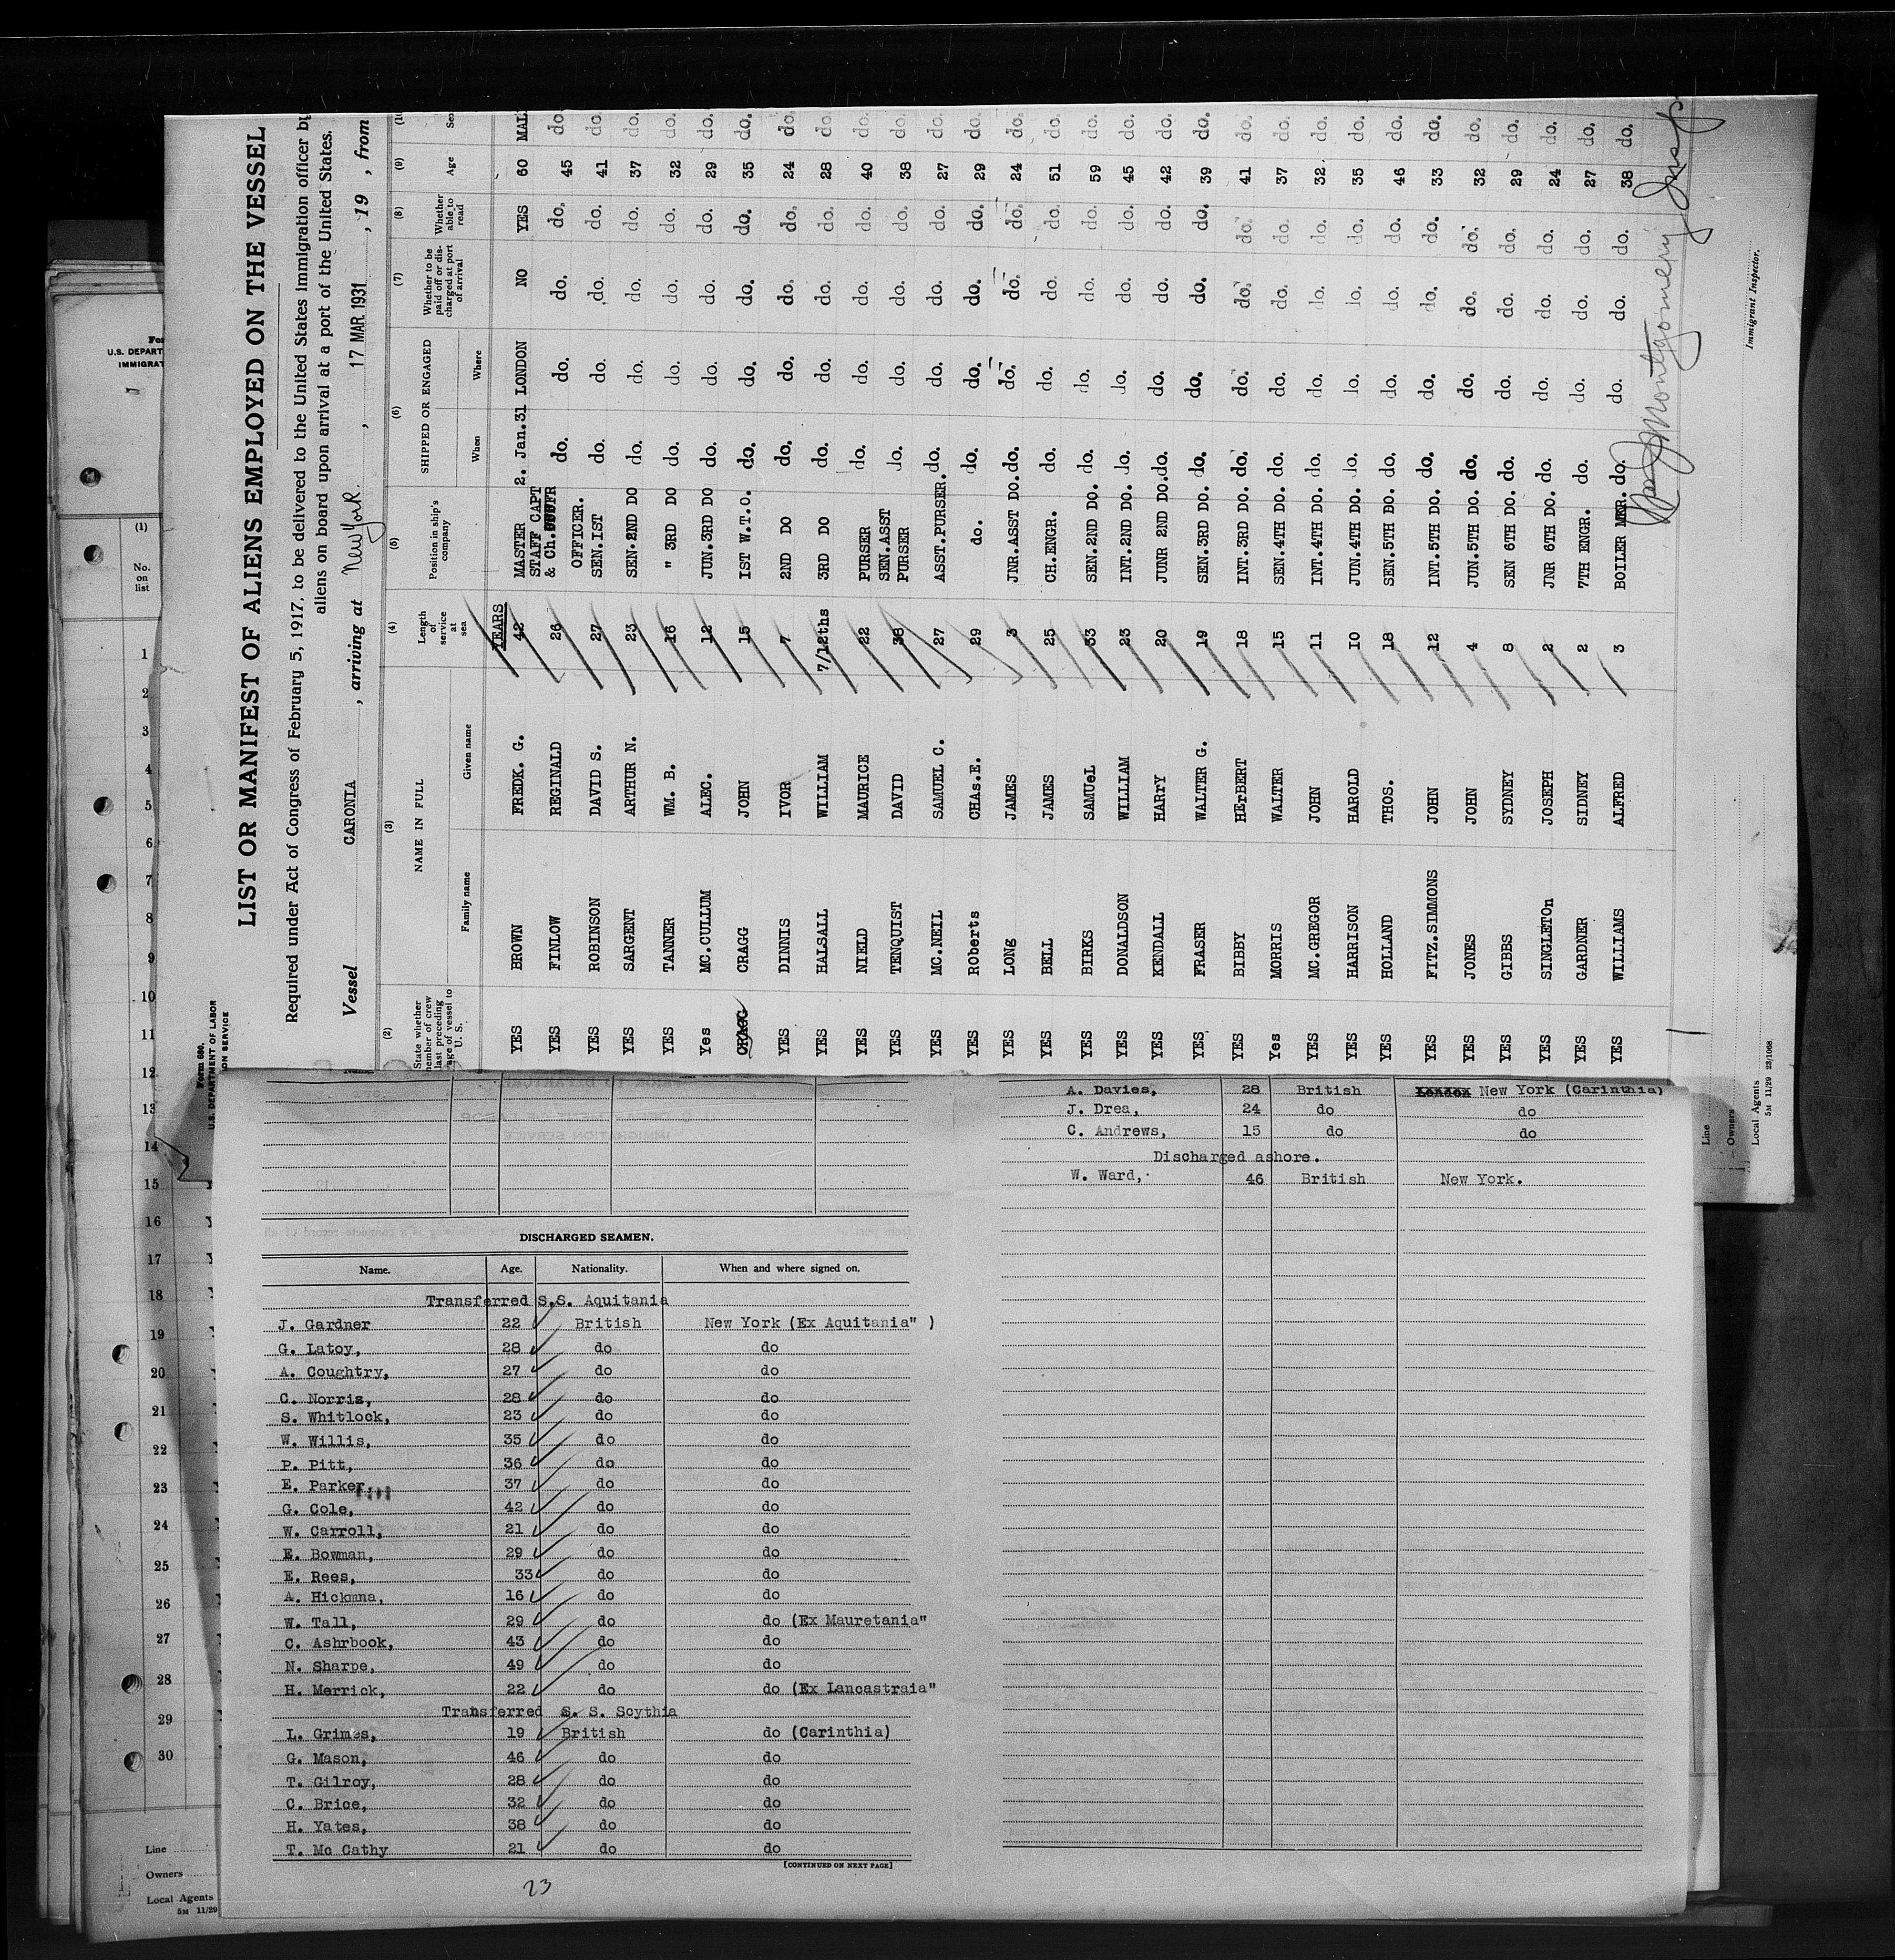 LIST OR MANIFEST OF ALIENS EMPLOYED ON THE VESSEL
Required under Act of Congress of February 5, 1917, to be delivered to the United States immigration officer by
aliens on board upon arrival at a port of the United States.
Form 680.
U.S. DEPARTMENT OF LABOR
ION SERVICE
Vessel CARONIA , arriving at New York. , 17 MAR 1931 , 19 , from
(2) (3) (4) (5) (6) (7) (8) (9) (10
State whether member of crew last preceding age of vessel to U. S. NAME IN FULL Family name Given name Length of service at sea Position in ship's company SHIPPED OR ENGAGED When Where Whether to be paid off or discharged at port of arrival Whether able to read Age Sex
YEARS
YES BROWN FREDK. G. 42 MASTER 2. Jan.31 LONDON NO YES 60 MAL
YES FINLOW REGINALD 26 STAFF CAPT & Ch. OFFICER. do. do. do. do. 45 do
YES ROBINSON DAVID S. 27 SEN.IST do. do. do. do. 41 do.
YES SARGENT ARTHUR N. 23 SEN.2ND DO do. do. do. do. 37 do.
YES TANNER WM. B. 16 " 3RD DO do. do. do. do. 32 do.
Yes MC.CULLUM ALEC. 12 JUN.3RD DO do. do. do. do. 29 do.
CRAGG JOHN 15 IST W.T.O. do. do. do. do. 35 do.
YES DINNIS IVOR 7 2ND DO do. do. do. do. 24 do.
YES HALSALL WILLIAM 7/12ths 3RD DO do. do. do. do. 28 do.
YES NIELD MAURICE 22 PURSER do. do. do. do. 40 do.
YES TENQUIST DAVID 38 SEN.ASST PURSER do. do. do. do. 38 do.
YES MC.NEIL SAMUEL C. 27 ASST.PURSER. do. do. do. do. 27 do.
YES Roberts CHAs.E. 29 do. do. do. do. do. 29 do.
YES LONg JAMES 3 JNR.ASST DO. do. do. do. do. 24 do.
YES BELL JAMES 25 CH.ENGR. do. do. do. do. 51 do.
YES BIRKS SAMUeL 33 SEN.2ND DO. do. do. do. do. 59 do.
YES DONALDSON WILLIAM 23 INT.2ND DO. do. do. do. do. 45 do.
YES KENDALL HARrY 20 JUNR 2ND DO. do. do. do. do. 42 do.
YES FRASER WALTER G. 19 SEN.3RD DO. do. do. do. do. 39 do.
YES BIBBY HErBERT 18 INT.3RD DO. do. do. do. do. 41 do.
Yes MORRIS WALTER 15 SEN.4TH DO. do. do. do. do. 37 do.
YES MC.GREGOR JOHN 11 INT.4TH DO. do. do. do. do. 32 do.
YES HARRISON HAROLD 10 JUN.4TH DO. do. do. do. do. 35 do.
YES HOLLAND THOS. 18 SEN.5TH DO. do. do. do. do. 46 do.
YES FITZ.SIMMONS JOHN 12 INT.5TH DO. do. do. do. do. 33 do.
YES JONES JOHN 4 JUN.5TH DO. do. do. do. do. 32 do.
YES GIBBS SYDNEY 8 SEN 6TH DO. do. do. do. do. 29 do.
YES SINGLETOn JOSEPH 2 JNR 6TH DO. do. do. do. do. 24 do.
YES GARDNER SIDNEY 2 7TH ENGR. do. do. do. do. 27 do.
YES WILLIAMS ALFRED 3 BOILER MKR. do. do. do. do. 38 do.
Montgomery Insp
Immigrant Inspector.
Line
Owners
Local Agents
5M 11/29 23/1068
For
U.S. DEPART
IMMIGRAT
(1)
No. on list
1
2
3
4
5
6
7
8
9
10
11
12
13
14
15
16
17
18
19
20
21
22
23
24
25
26
27
28
29
30
Line
Owners
Local Agents
5M 11/29
DISCHARGED SEAMEN.
Name. Age. Nationality. When and where signed on.
Transferred S.S. Aquitania
J. Gardner 22 British New York (Ex Aquitania" )
G. Latoy, 28 do do
A. Coughtry, 27 do do
C. Norris, 28 do do
S. Whitlock, 23 do do
W. Willis, 35 do do
P. Pitt, 36 do do
E. Parker, 37 do do
G. Cole, 42 do do
W. Carroll, 21 do do
E. Bowman, 29 do do
E. Rees, 33 do do
A. Hickmna, 16 do do
W. Tall, 29 do do (Ex Mauretania"
C. Ashrbook, 43 do do
N. Sharpe, 49 do do
H. Merrick, 22 do do (Ex Lancastraia"
Transferred S. S. Scythia
L. Grimes, 19 British do (Carinthia)
G. Mason, 46 do do
T. Gilroy, 28 do do
C. Brice, 32 do do
H. Yates, 38 do do
T. Mc Cathy 21 do do
[CONTINUED ON NEXT PAGE]
23
A. Davies, 28 British London New York (Carinthia)
J. Drea, 24 do do
C. Andrews, 15 do do
Discharged ashore.
W. Ward, 46 British New York.